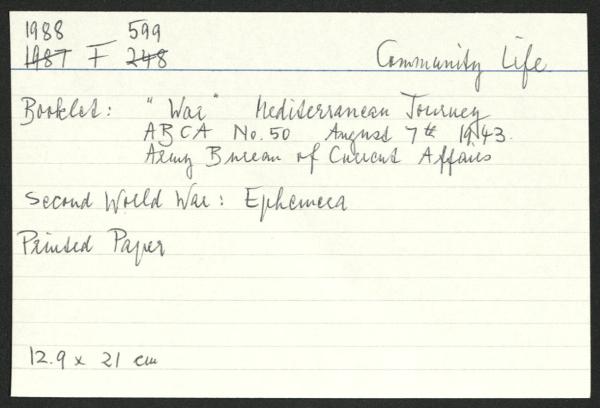 1988 599
1987 F 248 Community Life
Booklet: "War" Mediterranean Journey
ABCA No. 50 August 7th 1943.
Army Bureau of Current Affairs
Second World War: Ephemera
Printed Paper
12.9 x 21 cm